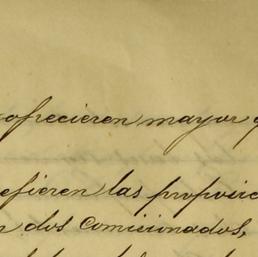 ofrecieren mayor
efieren las proposic
dos comicionados,